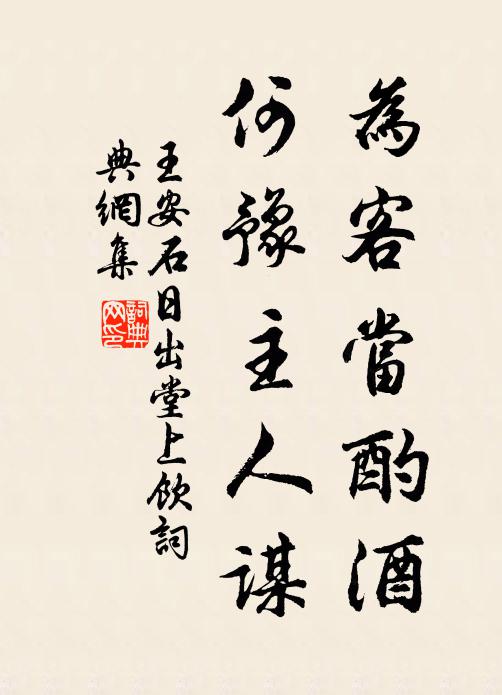 為客當酌酒
何豫主人謀
王安石日出堂上飲詞
典網集
詞典
网印